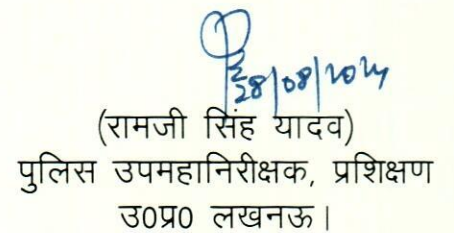 28/08/2024
(रामजी सिंह यादव)
पुलिस उपमहानिरीक्षक, प्रशिक्षण
उ0प्र0 लखनऊ।